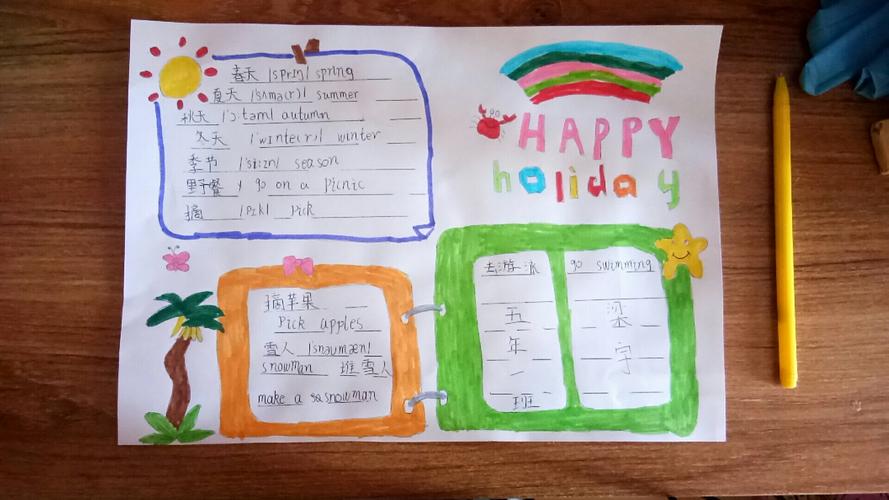 春天 /sprɪŋ/ spring
夏天 /sʌmə(r)/ summer
秋天 /'ɔ:təm/ autumn
冬天 /'wɪntə(r)/ winter
季节 /'si:zn/ season
野餐 go on a picnic
摘 /pɪk/ pick
HAPPY
holiday
摘苹果
Pick apples
雪人 /snəʊmæn/
snowman 堆雪人
make a snowman
去游泳
五
年
一
班
go swimming
梁
宇